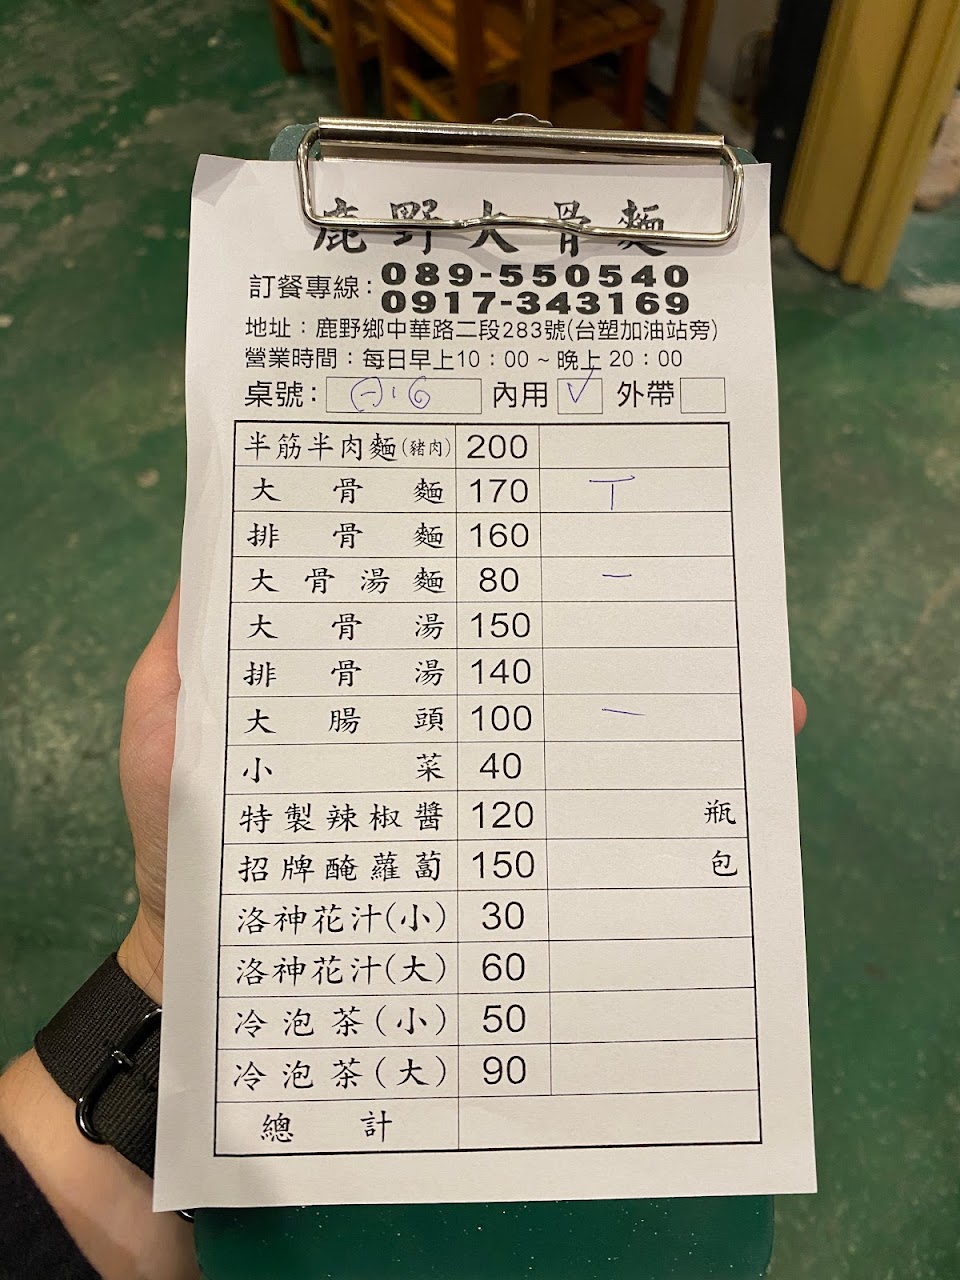 鹿野大骨麵
訂餐專線：089-550540
0917-343169
地址：鹿野鄉中華路二段283號(台塑加油站旁)
營業時間：每日早上10：00～晚上 20：00
桌號： 內用 ✓ 外帶
半筋半肉麵(豬肉) 200
大骨麵 170 丅
排骨麵 160
大骨湯麵 80 一
大骨湯 150
排骨湯 140
大腸頭 100 一
小菜 40
特製辣椒醬 120 瓶
招牌醃蘿蔔 150 包
洛神花汁(小) 30
洛神花汁(大) 60
冷泡茶(小) 50
冷泡茶(大) 90
總計